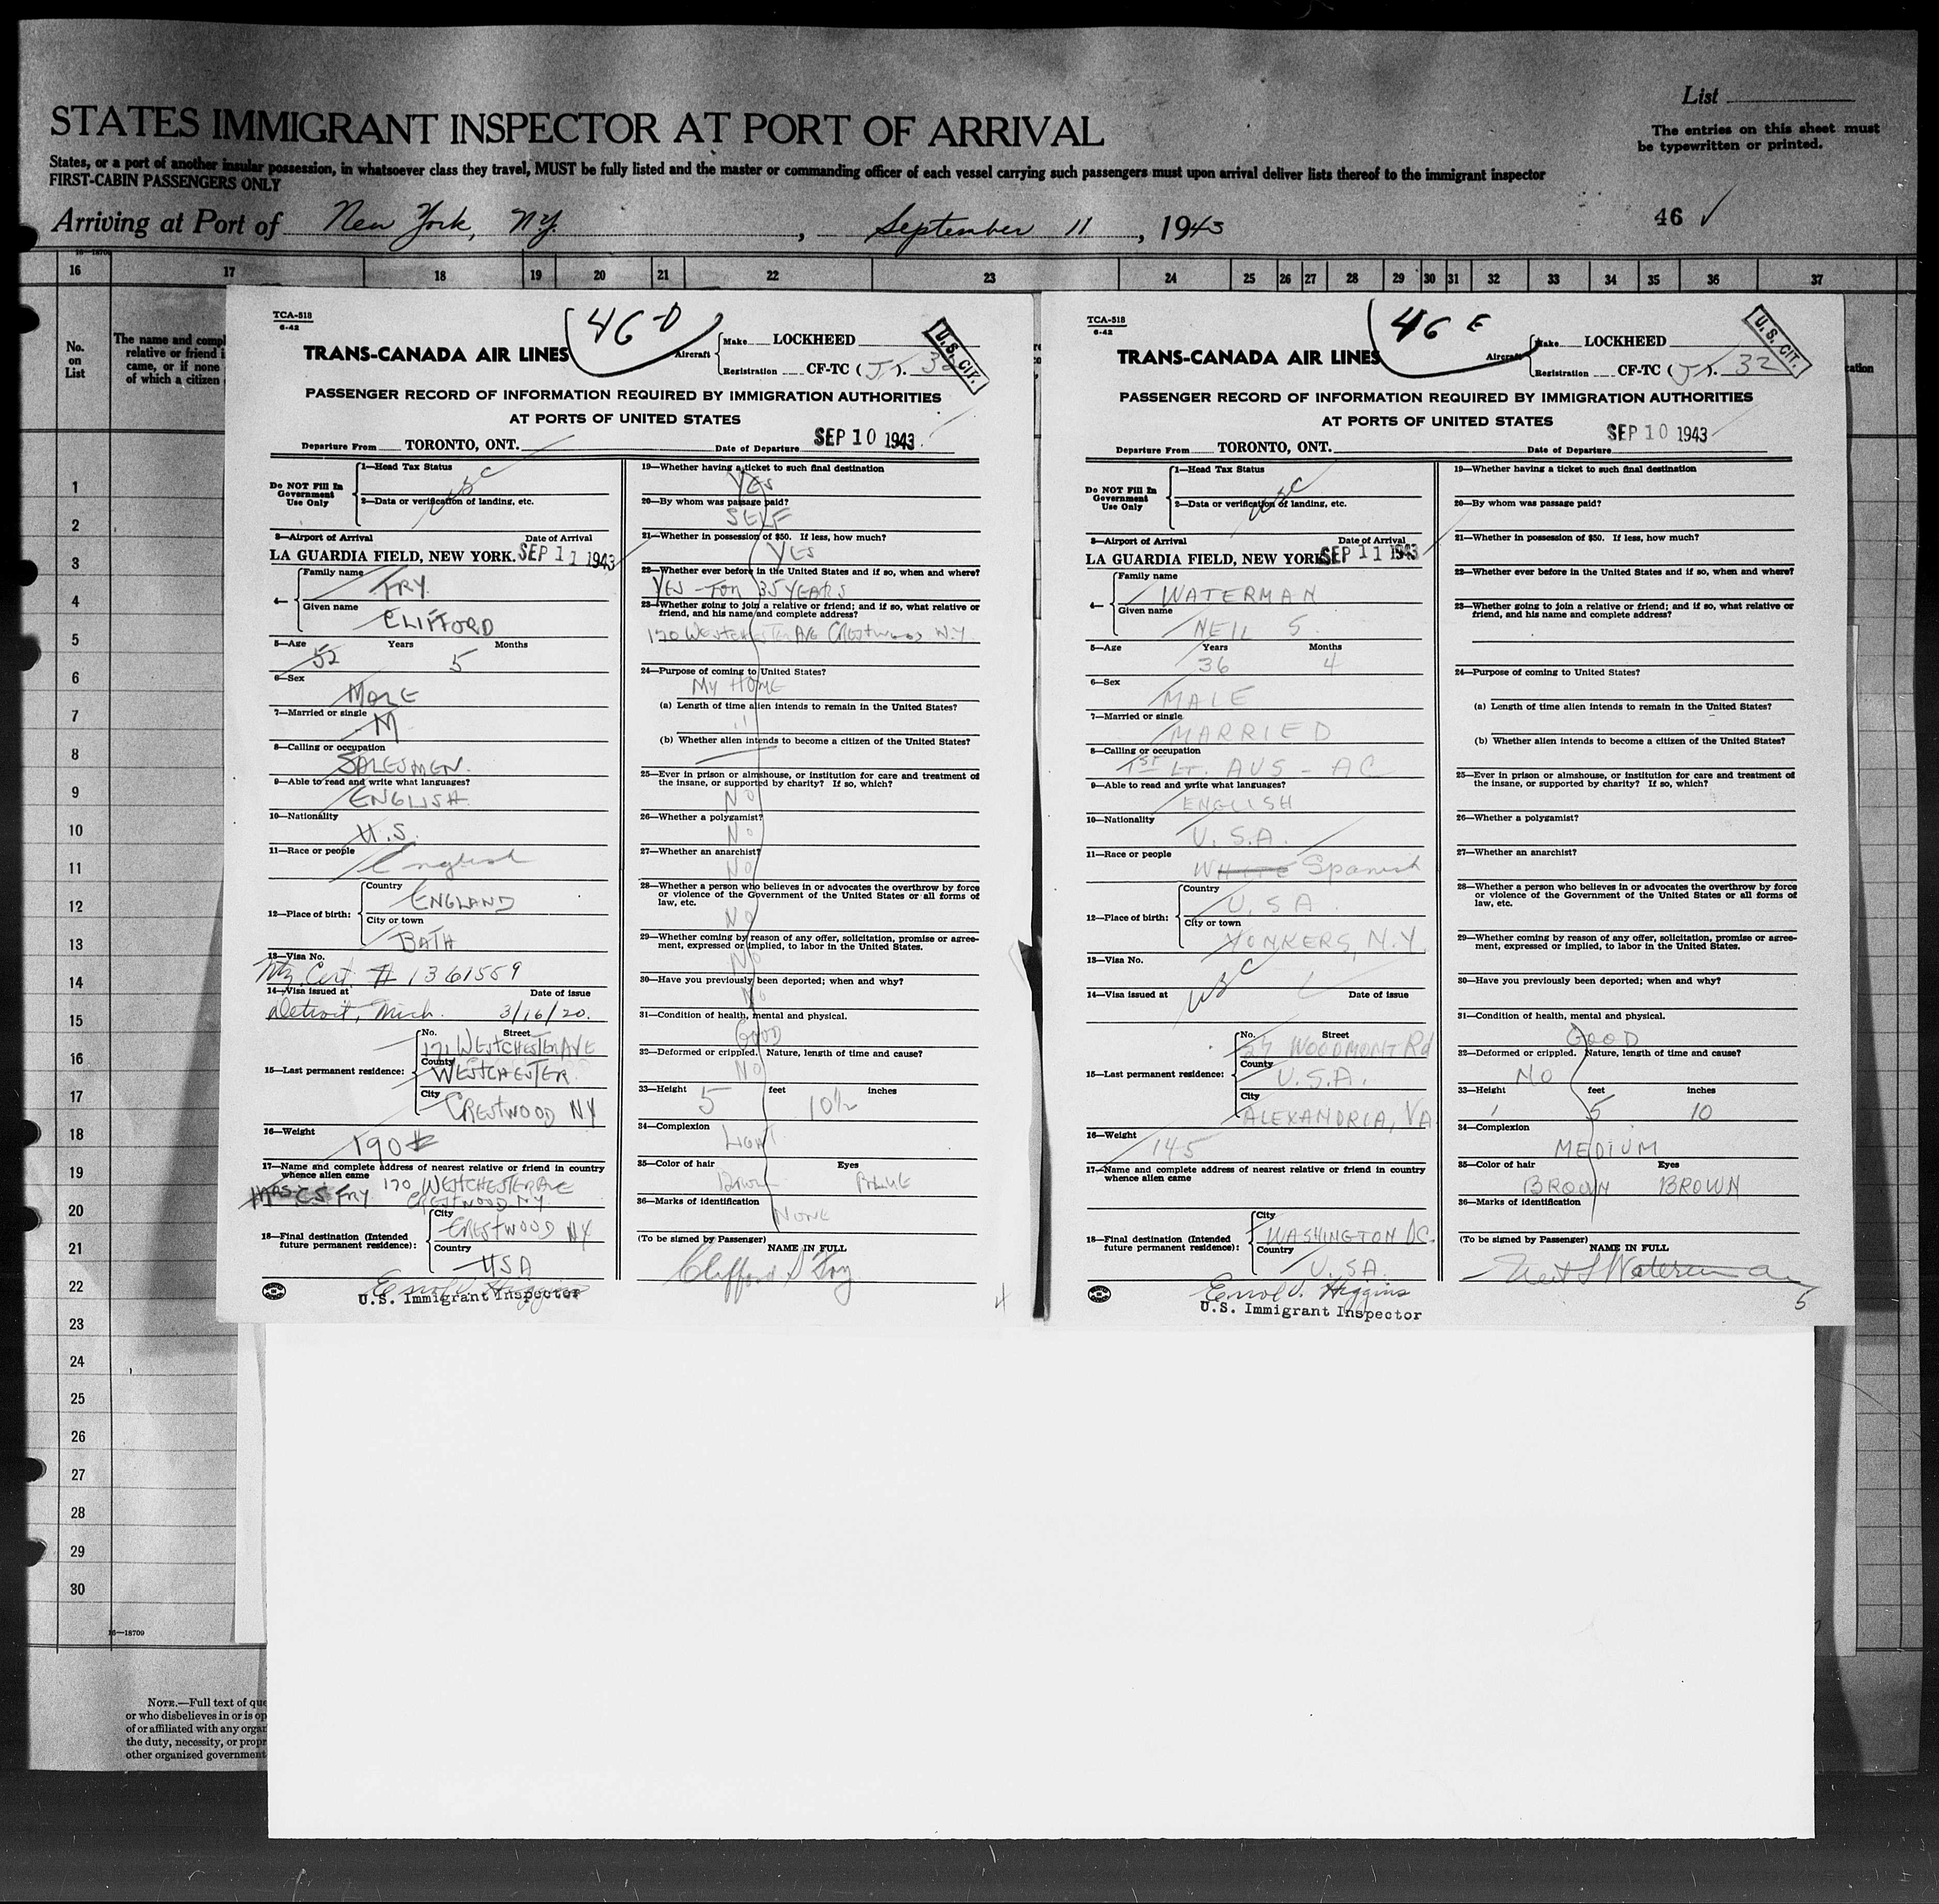 STATES IMMIGRANT INSPECTOR AT PORT OF ARRIVAL
List
The entries on this sheet must
be typewritten or printed.
States, or a port of another insular possession, in whatsoever class they travel, MUST be fully listed and the master or commanding officer of each vessel carrying such passengers must upon arrival deliver lists thereof to the immigrant inspector
FIRST-CABIN PASSENGERS ONLY
Arriving at Port of New York, N.Y., September 11, 1943
46 ✓
16 17 18 19 20 21 22 23 24 25 26 27 28 29 30 31 32 33 34 35 36 37
No.
on
List
The name and compl
relative or friend i
came, or if none
of which a citizen
1
2
3
4
5
6
7
8
9
10
11
12
13
14
15
16
17
18
19
20
21
22
23
24
25
26
27
28
29
30
16—18709
NOTE.—Full text of que
or who disbelieves in or is op
of or affiliated with any organ
the duty, necessity, or propr
other organized government
TCA-518
6-42
46-D
TRANS-CANADA AIR LINES
Aircraft
Make LOCKHEED
Registration CF-TC (J).
U.S. CIT.
PASSENGER RECORD OF INFORMATION REQUIRED BY IMMIGRATION AUTHORITIES
AT PORTS OF UNITED STATES
Departure From TORONTO, ONT. Date of Departure SEP 10 1943
Do NOT Fill In
Government
Use Only
1—Head Tax Status
USC
2—Data or verification of landing, etc.
3—Airport of Arrival Date of Arrival
LA GUARDIA FIELD, NEW YORK. SEP 11 1943
4—
Family name
FRY
Given name
CLIFFORD
5—Age Years Months
52 5
6—Sex
MALE
7—Married or single
M
8—Calling or occupation
SALESMEN.
9—Able to read and write what languages?
ENGLISH
10—Nationality
U.S.
11—Race or people
English
12—Place of birth:
Country
ENGLAND
City or town
BATH
13—Visa No.
Ntz Cert # 1361559
14—Visa issued at Date of issue
Detroit, Mich. 3/16/20.
15—Last permanent residence:
No. Street
171 WESTCHESTER AVE
County
WESTCHESTER
City
CRESTWOOD NY
16—Weight
190#
17—Name and complete address of nearest relative or friend in country
whence alien came
MRS CS FRY 170 WESTCHESTER AVE
CRESTWOOD NY.
18—Final destination (Intended
future permanent residence):
City
CRESTWOOD NY
Country
USA
Errol V. Higgins
U.S. Immigrant Inspector
19—Whether having a ticket to such final destination
YES
20—By whom was passage paid?
SELF
21—Whether in possession of $50. If less, how much?
YES
22—Whether ever before in the United States and if so, when and where?
YES - FOR 35 YEARS
23—Whether going to join a relative or friend; and if so, what relative or
friend, and his name and complete address?
170 WESTCHESTER AVE CRESTWOOD N.Y.
24—Purpose of coming to United States?
MY HOME
(a) Length of time alien intends to remain in the United States?
"
(b) Whether alien intends to become a citizen of the United States?
25—Ever in prison or almshouse, or institution for care and treatment of
the insane, or supported by charity? If so, which?
NO
26—Whether a polygamist?
NO
27—Whether an anarchist?
NO
28—Whether a person who believes in or advocates the overthrow by force
or violence of the Government of the United States or all forms of
law, etc.
NO
29—Whether coming by reason of any offer, solicitation, promise or agree-
ment, expressed or implied, to labor in the United States.
NO
30—Have you previously been deported; when and why?
NO
31—Condition of health, mental and physical.
GOOD
32—Deformed or crippled. Nature, length of time and cause?
NO
33—Height feet inches
5 10½
34—Complexion
LIGHT
35—Color of hair Eyes
BLUE
36—Marks of identification
NONE
(To be signed by Passenger)
NAME IN FULL
Clifford S Fry
4
TCA-518
6-42
46 E
TRANS-CANADA AIR LINES
Aircraft
Make LOCKHEED
Registration CF-TC (J). 32
U.S. CIT.
PASSENGER RECORD OF INFORMATION REQUIRED BY IMMIGRATION AUTHORITIES
AT PORTS OF UNITED STATES
Departure From TORONTO, ONT. Date of Departure SEP 10 1943
Do NOT Fill In
Government
Use Only
1—Head Tax Status
USC
2—Data or verification of landing, etc.
3—Airport of Arrival Date of Arrival
LA GUARDIA FIELD, NEW YORK. SEP 11 1943
4—
Family name
WATERMAN
Given name
NEIL S.
5—Age Years Months
36 4
6—Sex
MALE
7—Married or single
MARRIED
8—Calling or occupation
1ST LT. AUS - AC
9—Able to read and write what languages?
ENGLISH
10—Nationality
U.S.A.
11—Race or people
WHITE Spanish
12—Place of birth:
Country
U.S.A.
City or town
YONKERS, N.Y.
13—Visa No.
USC
14—Visa issued at Date of issue
15—Last permanent residence:
No. Street
27 WOODMONT Rd
County
U.S.A.
City
ALEXANDRIA, VA
16—Weight
145
17—Name and complete address of nearest relative or friend in country
whence alien came
18—Final destination (Intended
future permanent residence):
City
WASHINGTON DC.
Country
U.S.A.
Errol V. Higgins
U.S. Immigrant Inspector
19—Whether having a ticket to such final destination
20—By whom was passage paid?
21—Whether in possession of $50. If less, how much?
22—Whether ever before in the United States and if so, when and where?
23—Whether going to join a relative or friend; and if so, what relative or
friend, and his name and complete address?
24—Purpose of coming to United States?
(a) Length of time alien intends to remain in the United States?
(b) Whether alien intends to become a citizen of the United States?
25—Ever in prison or almshouse, or institution for care and treatment of
the insane, or supported by charity? If so, which?
26—Whether a polygamist?
27—Whether an anarchist?
28—Whether a person who believes in or advocates the overthrow by force
or violence of the Government of the United States or all forms of
law, etc.
29—Whether coming by reason of any offer, solicitation, promise or agree-
ment, expressed or implied, to labor in the United States.
30—Have you previously been deported; when and why?
31—Condition of health, mental and physical.
GOOD
32—Deformed or crippled. Nature, length of time and cause?
NO
33—Height feet inches
5 10
34—Complexion
MEDIUM
35—Color of hair Eyes
BROWN BROWN
36—Marks of identification
(To be signed by Passenger)
NAME IN FULL
Neil S Waterman
5